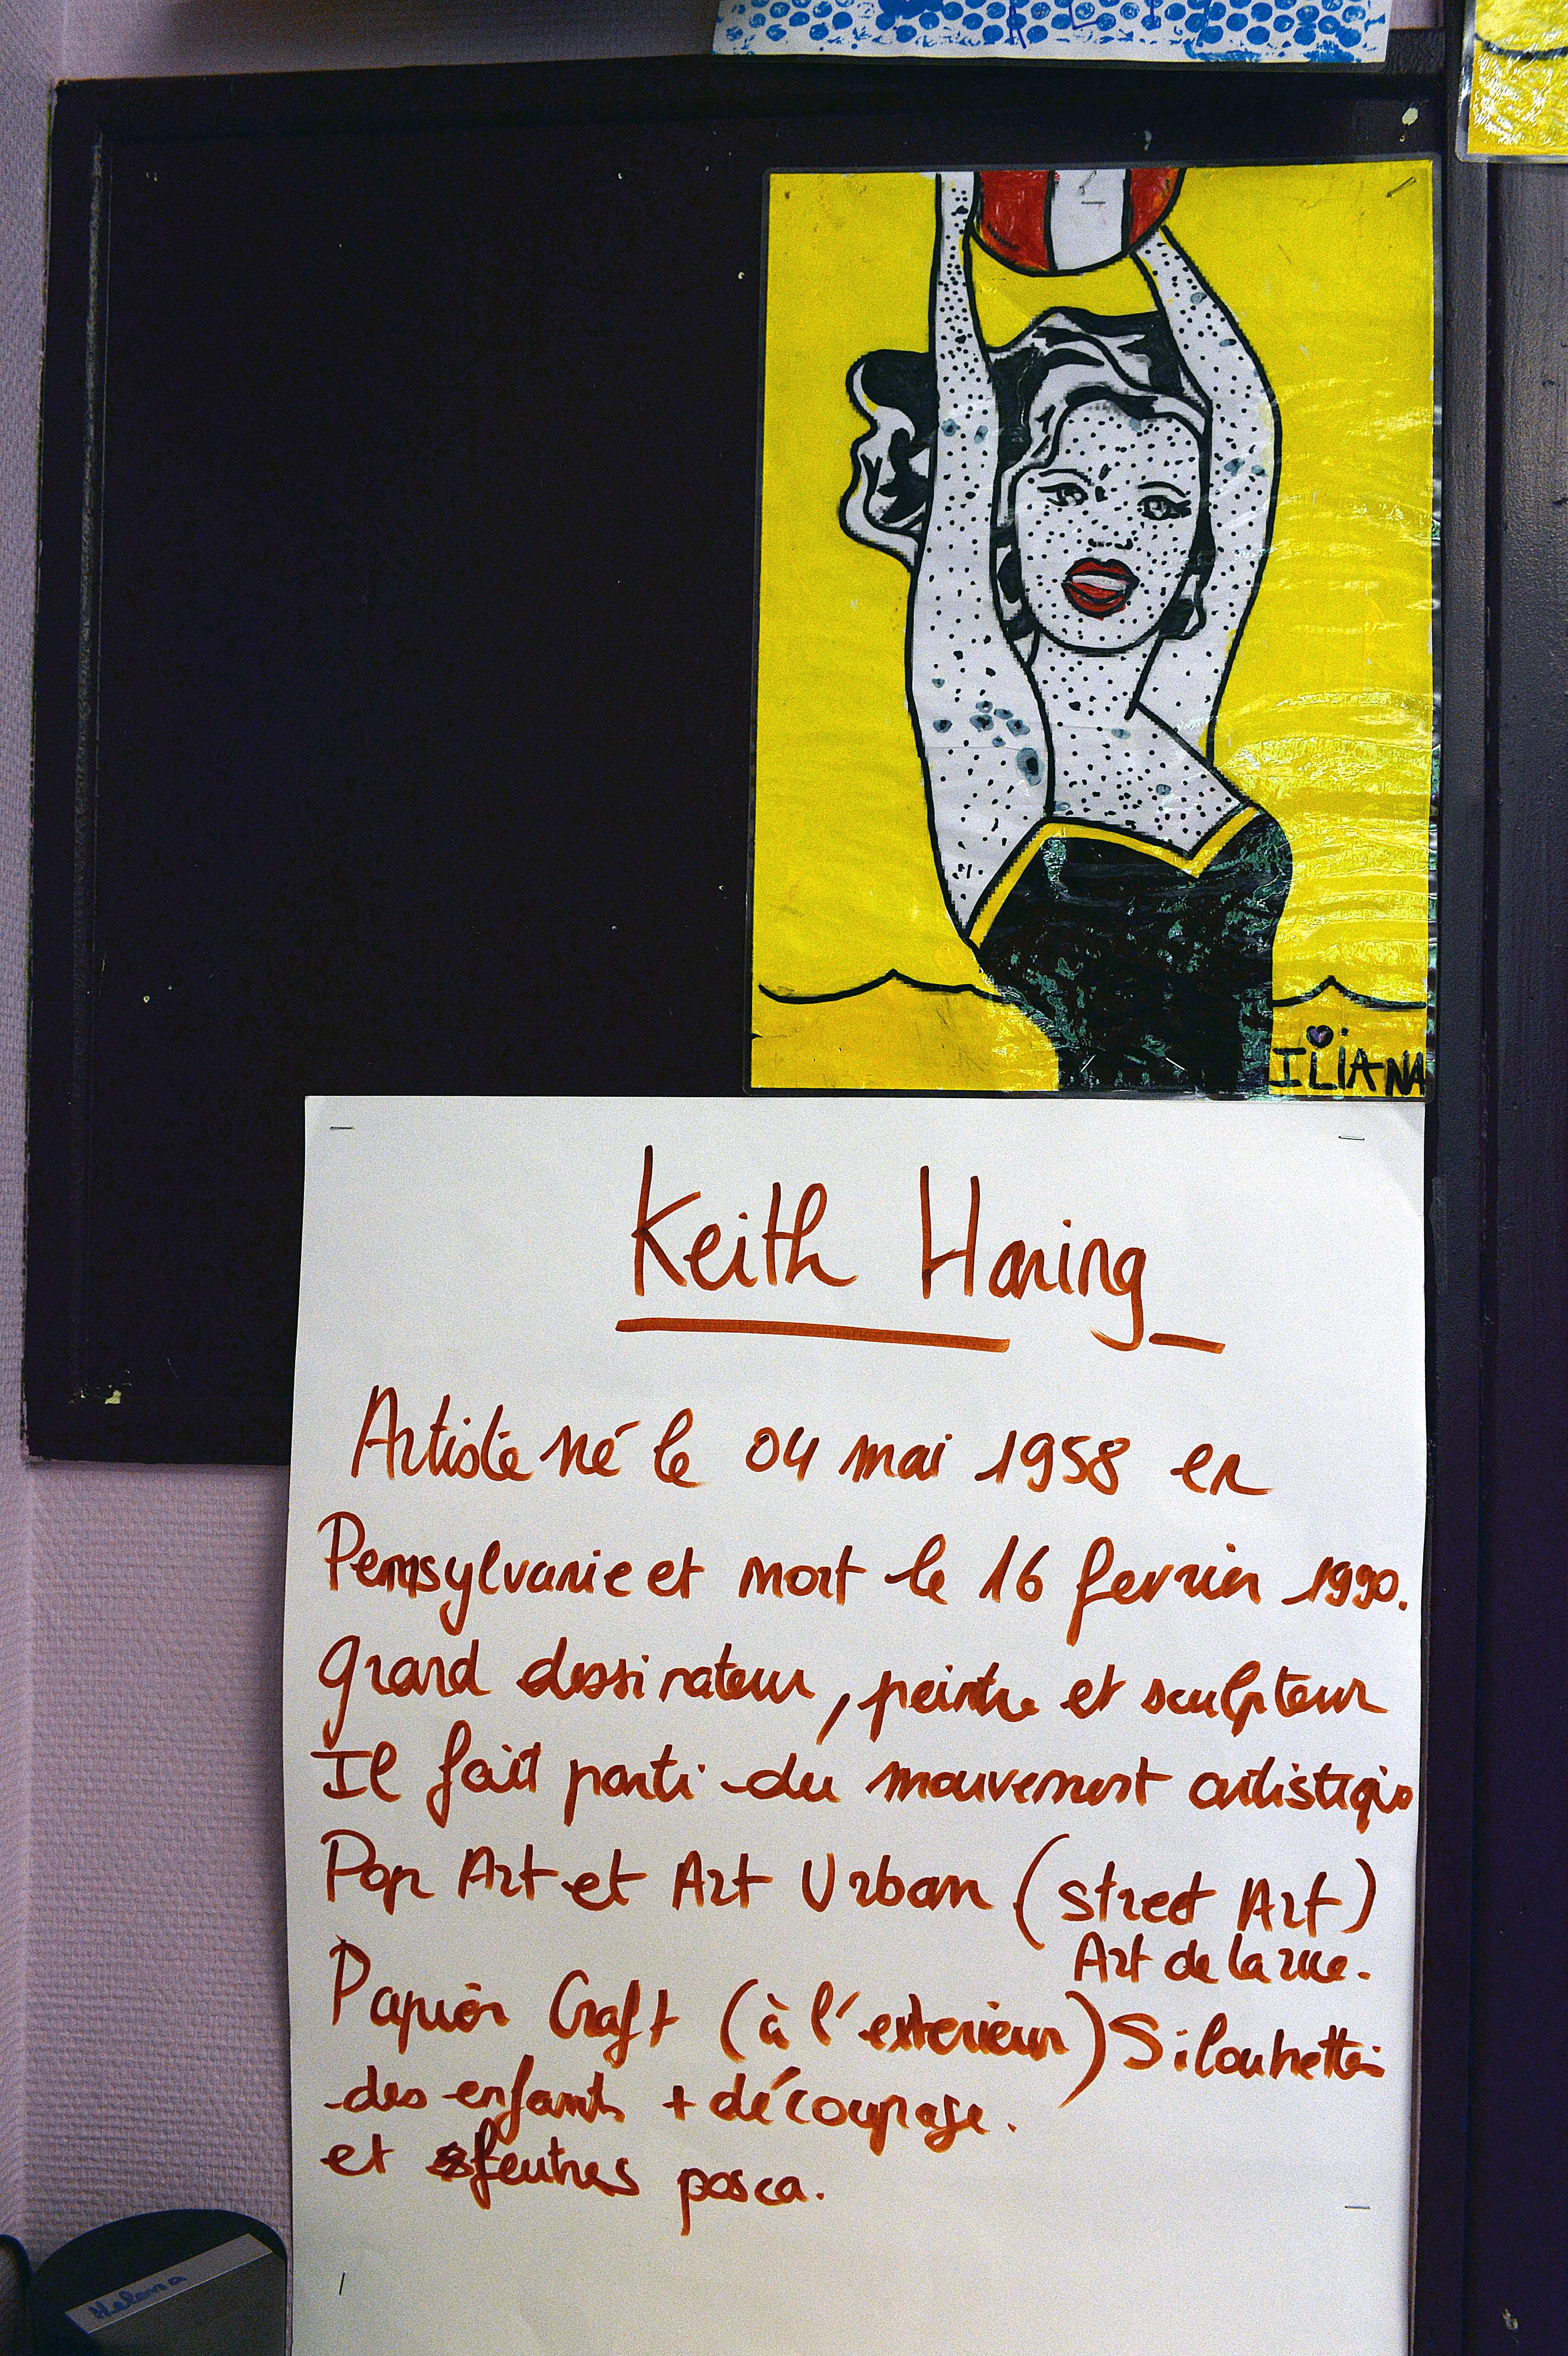 ILiANA
Keith Haring
Artiste né le 04 mai 1958 en
Pennsylvanie et mort le 16 fevrier 1990.
Grand dessinateur, peintre et sculpteur
Il fait parti du mouvement artistique
Pop Art et Art Urban (street Art)
Art de la rue.
Papier Craft (à l'exterieur) Silouhettes
des enfants + découpage.
et feutres posca.
Helena